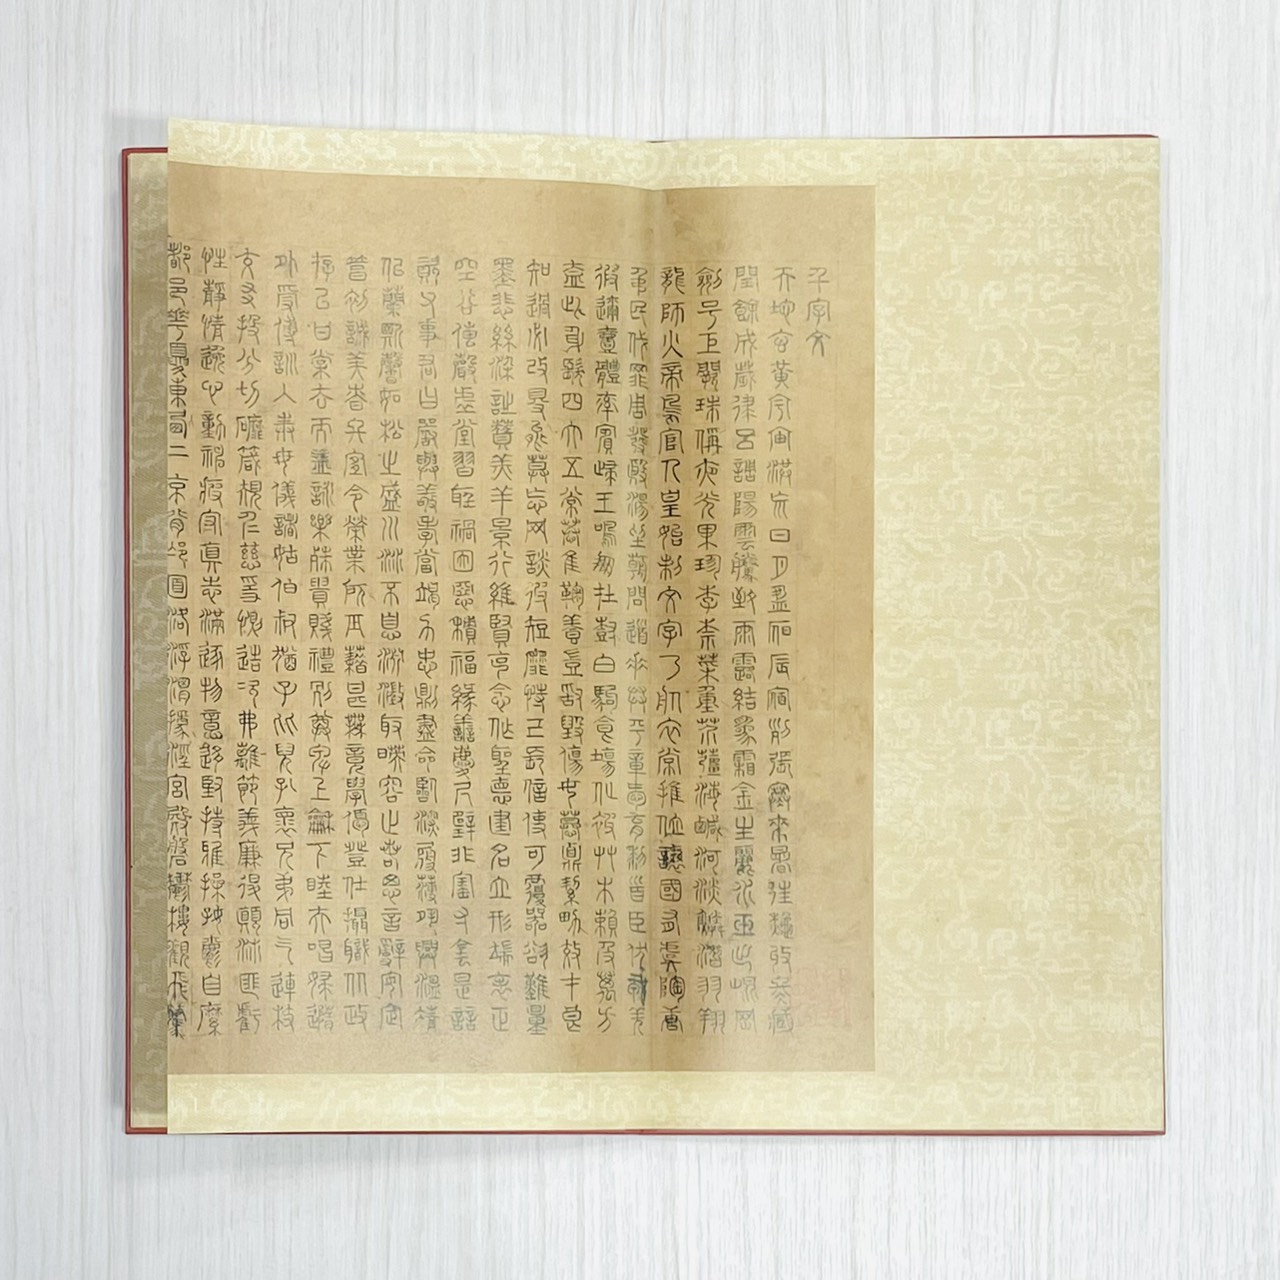 千字文
天地玄黃宇宙洪荒日月盈昃辰宿列張寒來暑往秋收冬藏
閏餘成歲律呂調陽雲騰致雨露結為霜金生麗水玉出崑岡
劍號巨闕珠稱夜光果珍李柰菜重芥薑海鹹河淡鱗潛羽翔
龍師火帝鳥官人皇始制文字乃服衣裳推位讓國有虞陶唐
弔民伐罪周發殷湯坐朝問道垂拱平章愛育黎首臣伏戎羌
遐邇壹體率賓歸王鳴鳳在樹白駒食場化被草木賴及萬方
蓋此身髮四大五常恭惟鞠養豈敢毀傷女慕貞絜男效才良
知過必改得能莫忘罔談彼短靡恃己長信使可覆器欲難量
墨悲絲染詩讚羔羊景行維賢克念作聖德建名立形端表正
空谷傳聲虛堂習聽禍因惡積福緣善慶尺璧非寶寸陰是競
資父事君曰嚴與敬孝當竭力忠則盡命臨深履薄夙興溫凊
似蘭斯馨如松之盛川流不息淵澄取映容止若思言辭安定
篤初誠美慎終宜令榮業所基籍甚無竟學優登仕攝職從政
存以甘棠去而益詠樂殊貴賤禮別尊卑上和下睦夫唱婦隨
外受傅訓入奉母儀諸姑伯叔猶子比兒孔懷兄弟同氣連枝
交友投分切磨箴規仁慈隱惻造次弗離節義廉退顛沛匪虧
性靜情逸心動神疲守真志滿逐物意移堅持雅操好爵自縻
都邑華夏東西二京背邙面洛浮渭據涇宮殿盤鬱樓觀飛驚